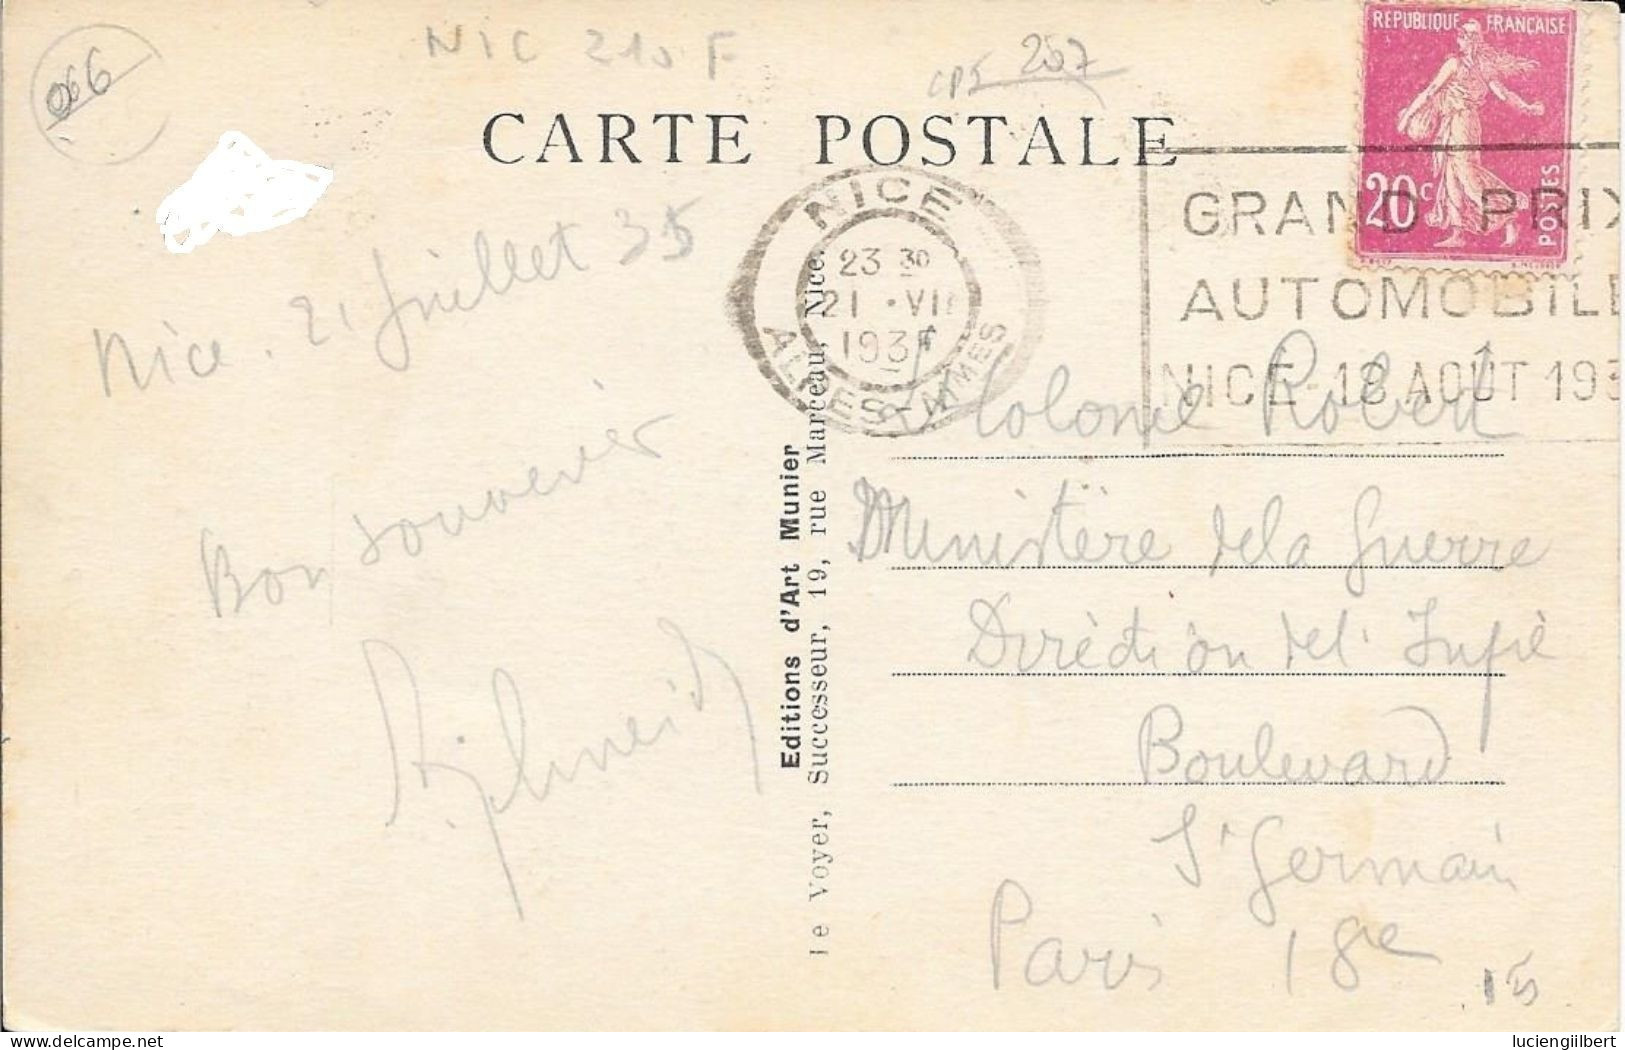 066
NIC 210 F
CP5 207
CARTE POSTALE
REPUBLIQUE FRANÇAISE
20c
POSTES
NICE
23 30
21 · VII
1935
ALPES-MMES
GRAND PRIX
AUTOMOBILE
NICE-18 AOÛT 193
Nice . 21 Juillet 35
Bon souvenir
Editions d'Art Munier
le Voyer, Successeur, 19, rue Marceau, Nice.
Colonel Robert
Ministère de la Guerre
Direction de l' Infie
Boulevard
St Germain
Paris 18e
15
delcampe.net
luciengilbert